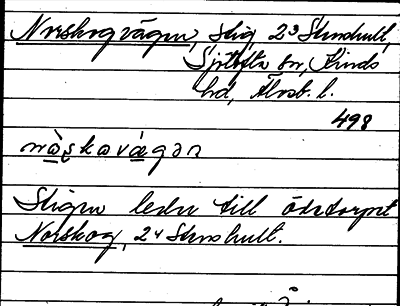 Norskogvägen, stig, 23 Stenshult,
Sjötofta sn, Kinds
hd, Älvsb. l.
498
nɷ̀skavǽgən
Stigen leder till ödetorpet
Norskog, 24 Stenshult.